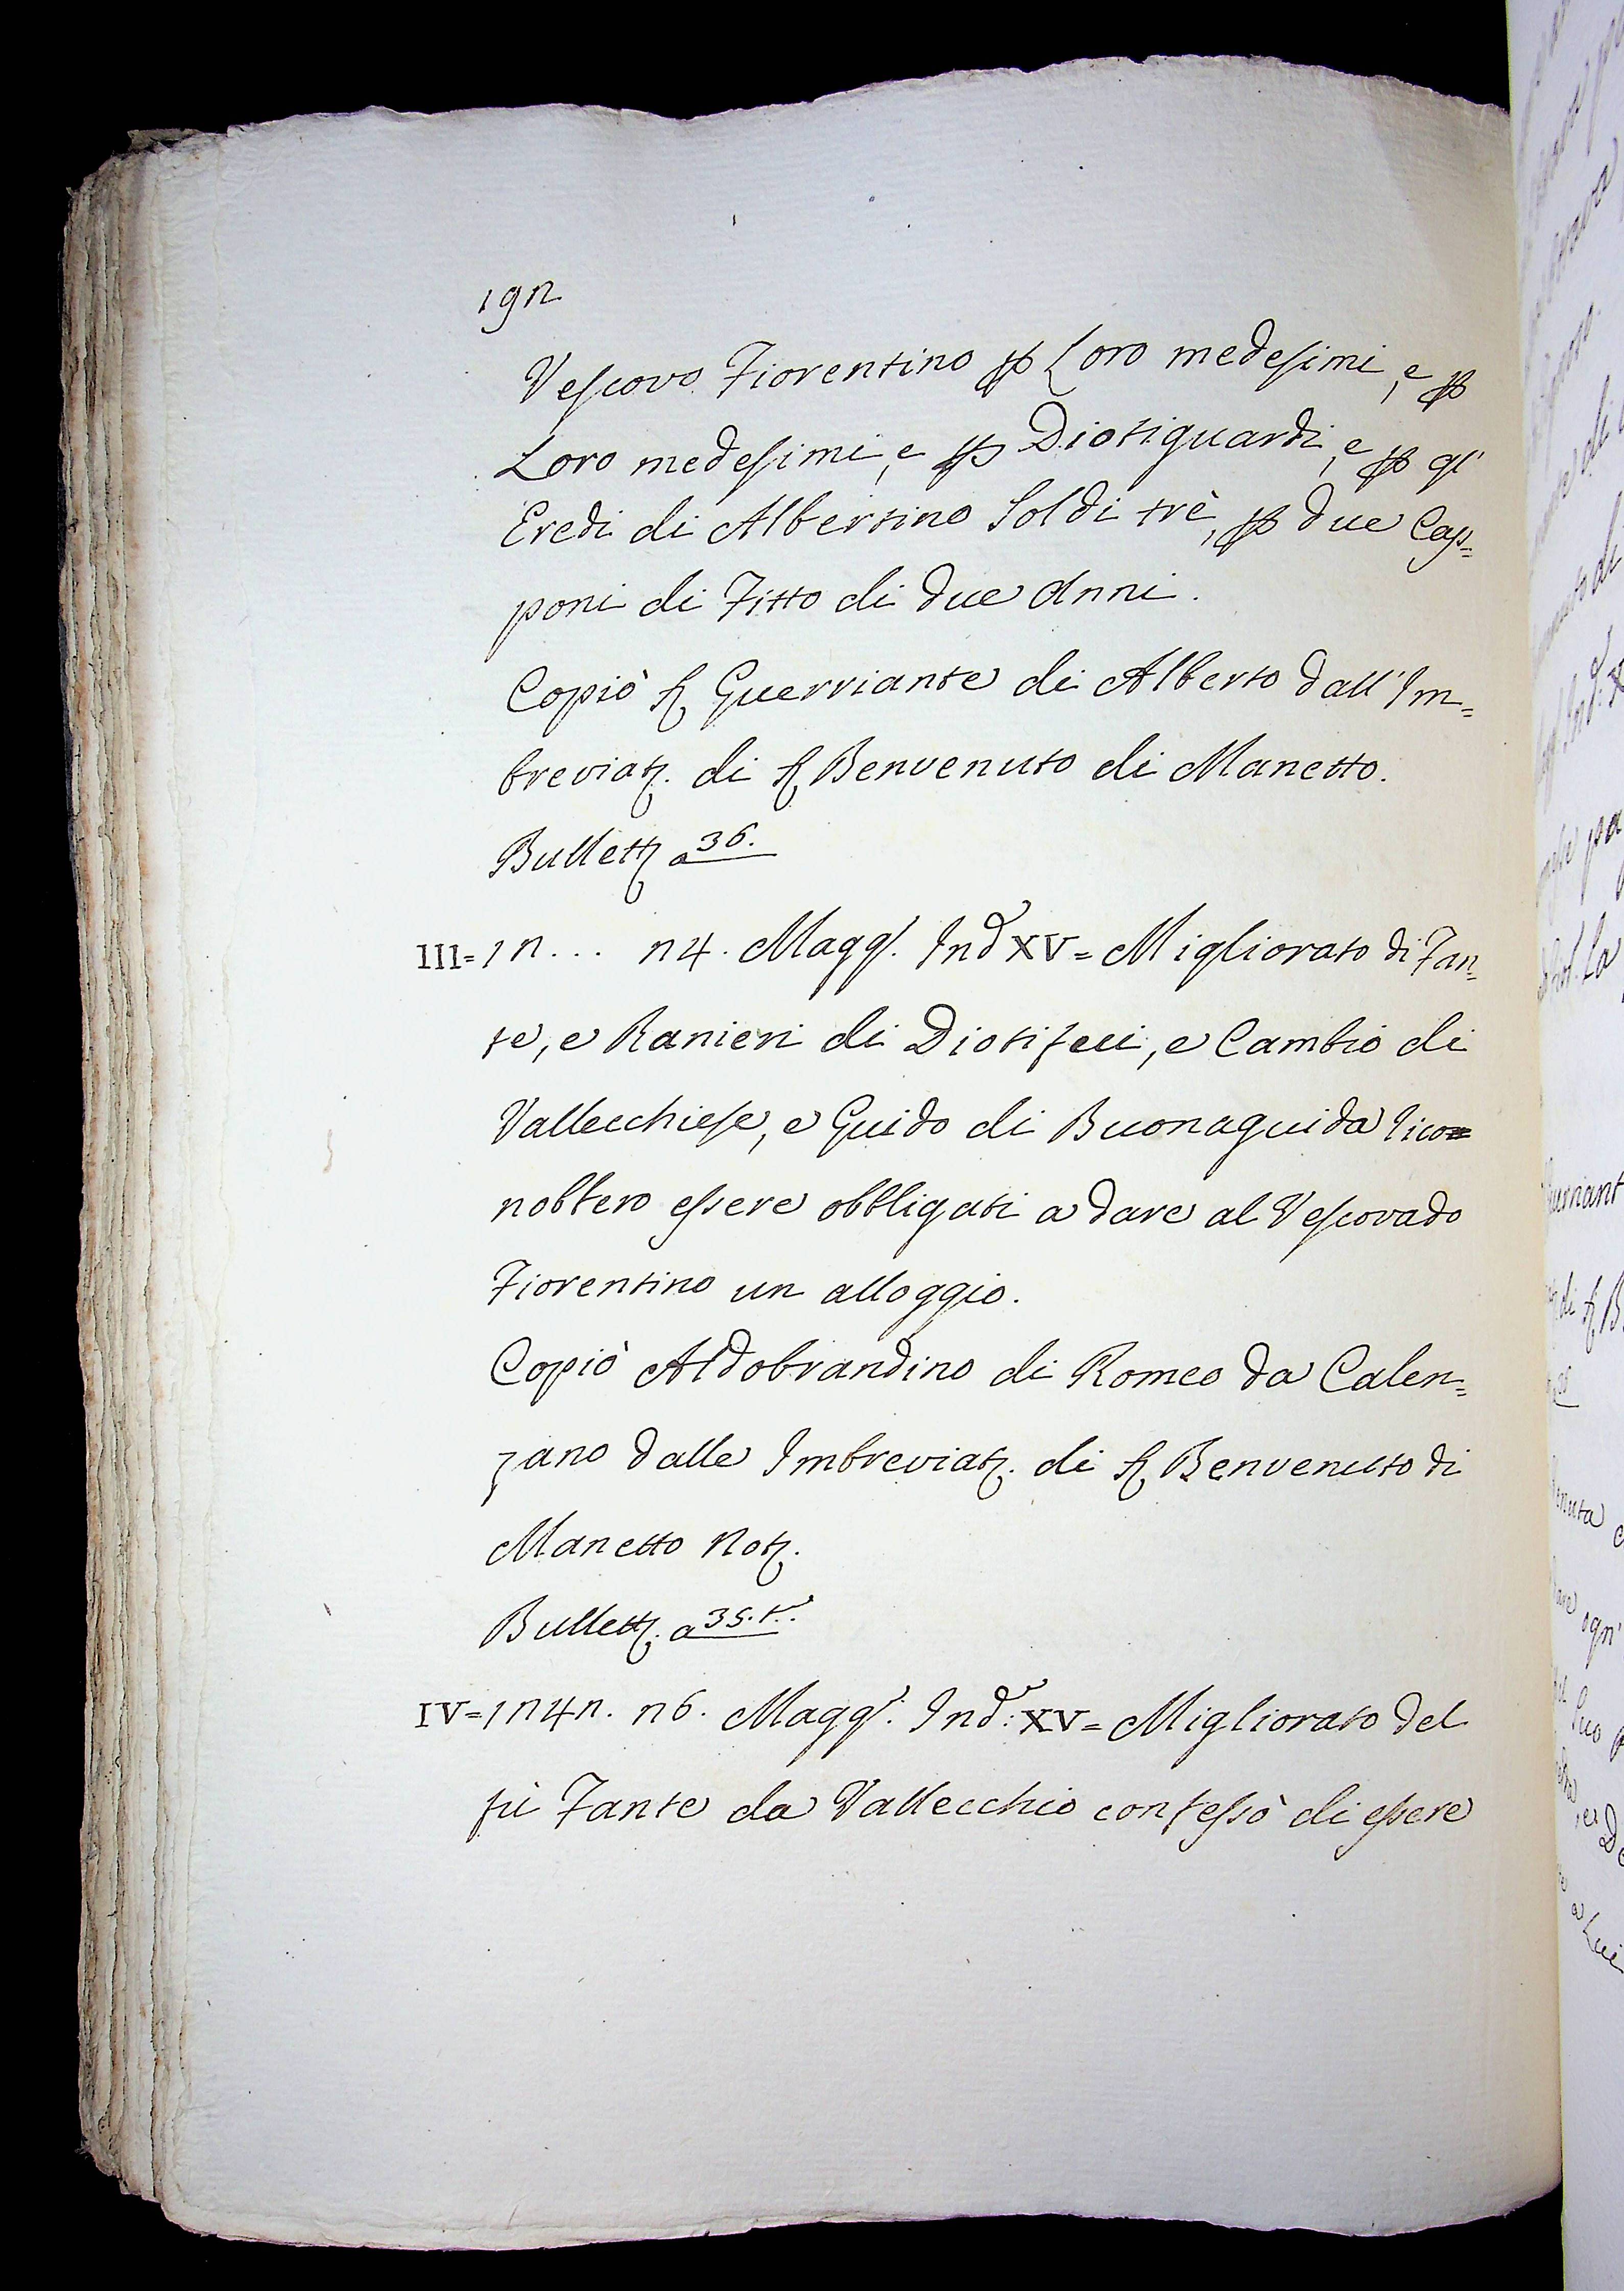 192
Vescovo Fiorentino p Loro medesimi, e p
Loro medesimi, e p Diotiguardi, e p gl'
Eredi di Albertino Soldi trè, p due Cap=
poni di Fitto di due Anni.
Copiò S. Guerriante di Alberto dall'Im=
breviat. di S. Benvenuto di Manetto.
Bullett. a 36.
III=12... 24. Magg. Ind XV= Migliorato di Fan=
te, e Ranieri di Diotifeci, e Cambio di
Vallecchiese, e Guido di Buonaguida rico=
nobbero essere obbligati a dare al Vescovado
Fiorentino un alloggio.
Copiò Aldobrandino di Romeo da Calen=
zano dalle Imbreviat. di S. Benvenuto di
Manetto Not.
Bullett. a 35.t.
IV=1242. 26. Magg. Ind: XV= Migliorato del
fù Fante da Vallecchio confessò di essere